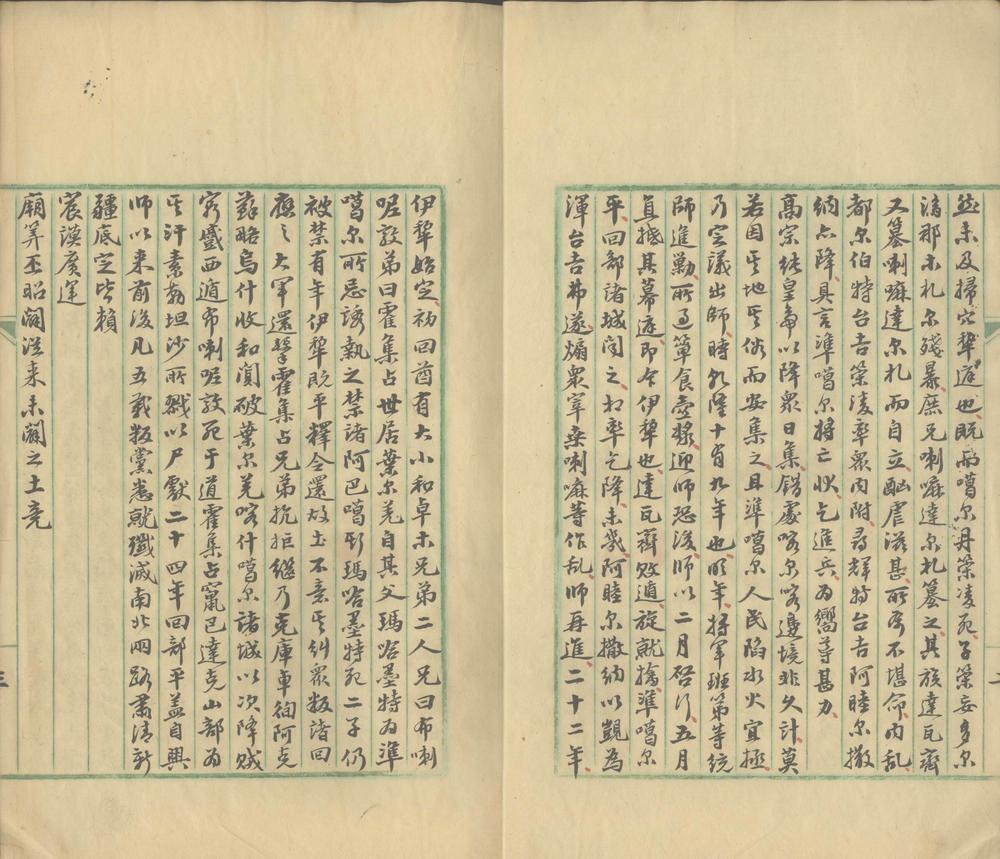 然未及掃穴犂庭也既而噶尔丹策凌死子策妄多尔
濟那木札尔殘暴庶兄喇嘛達尔札篡之其族達瓦齊
又篡喇嘛達尔札而自立酗虐滋甚所部不堪命内乱
都尔伯特台吉策淩率眾内附尋輝特台吉阿睦尔撒
納亦降具言準噶尔将亡狀乞進兵為嚮導甚力
高宗純皇帝以降眾日集錯處喀尔喀邊境非久計莫
若因其地其俗而安集之且準噶尔人民陷水火宜拯
乃定議出師時乾隆十有九年也明年将軍班第等統
師進勦所過簞食壺漿迎師恐後師以二月啓行五月
直抵其幕庭即今伊犂也達瓦齊敗遁旋就擒準噶尔
平回部諸城聞之相率乞降未幾阿睦尔撒納以覬為
渾台吉弗遂煽眾宰桑喇嘛等作乱師再進二十二年
伊犂始定初回酋有大小和卓木兄弟二人兄曰布喇
呢敦弟曰霍集占世居葉尔羌自其父瑪哈墨特為準
噶尔所忌誘執之禁諸阿巴噶斯瑪哈墨特死二子仍
被禁有年伊犂既平釋令還故土不意其糾眾叛諸回
應之大軍還擊霍集占兄弟抗拒繼乃克庫車徇阿克
蘇略烏什收和闐破葉尔羌喀什噶尔諸城以次降賊
窮蹙西遁布喇呢敦死于道霍集占竄巴達克山部為
其汗素勒坦沙所戮以尸獻二十四年回部平蓋自興
師以来前後凡五載叛黨悉就殲滅南北兩路肅清新
疆底定皆賴
宸謨廣運
廟算丕昭闢從来未闢之土竟
三